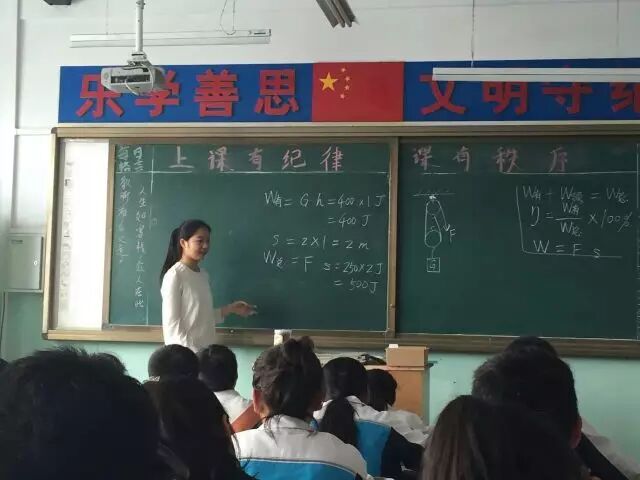 乐学善思 文明守纪
上课有纪律 课有秩序
人生如
W有 = G h = 400×1 J
= 400 J
s = 2×1 = 2 m
W总 = F s = 250×2 J
= 500 J
F
G
W有 + W额 = W总
η = W有/W总 ×100%
W = F s